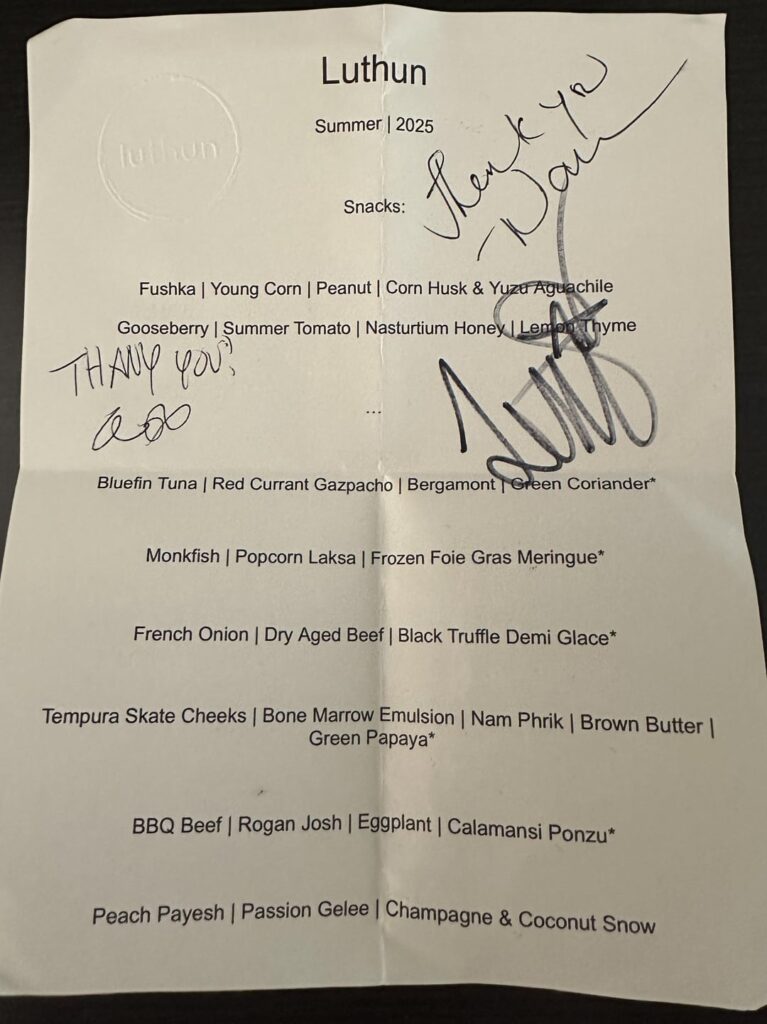 Luthun
luthun
Summer | 2025
Thank you
Snacks:
Fushka | Young Corn | Peanut | Corn Husk & Yuzu Aguachile
Gooseberry | Summer Tomato | Nasturtium Honey | Lemon Thyme
THANK YOU!
...
Bluefin Tuna | Red Currant Gazpacho | Bergamont | Green Coriander*
Monkfish | Popcorn Laksa | Frozen Foie Gras Meringue*
French Onion | Dry Aged Beef | Black Truffle Demi Glace*
Tempura Skate Cheeks | Bone Marrow Emulsion | Nam Phrik | Brown Butter |
Green Papaya*
BBQ Beef | Rogan Josh | Eggplant | Calamansi Ponzu*
Peach Payesh | Passion Gelee | Champagne & Coconut Snow